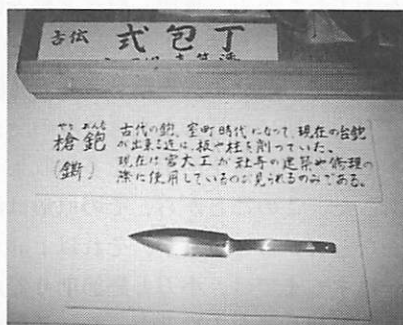 古伝 式包丁
やりかんな
槍鉋
(鐁)
古代の鉋、室町時代になって、現在の台鉋
が出来る迄は、板や柱を削っていた。
現在は宮大工が社寺の建築や修理の
際に使用しているのが見られるのみである。